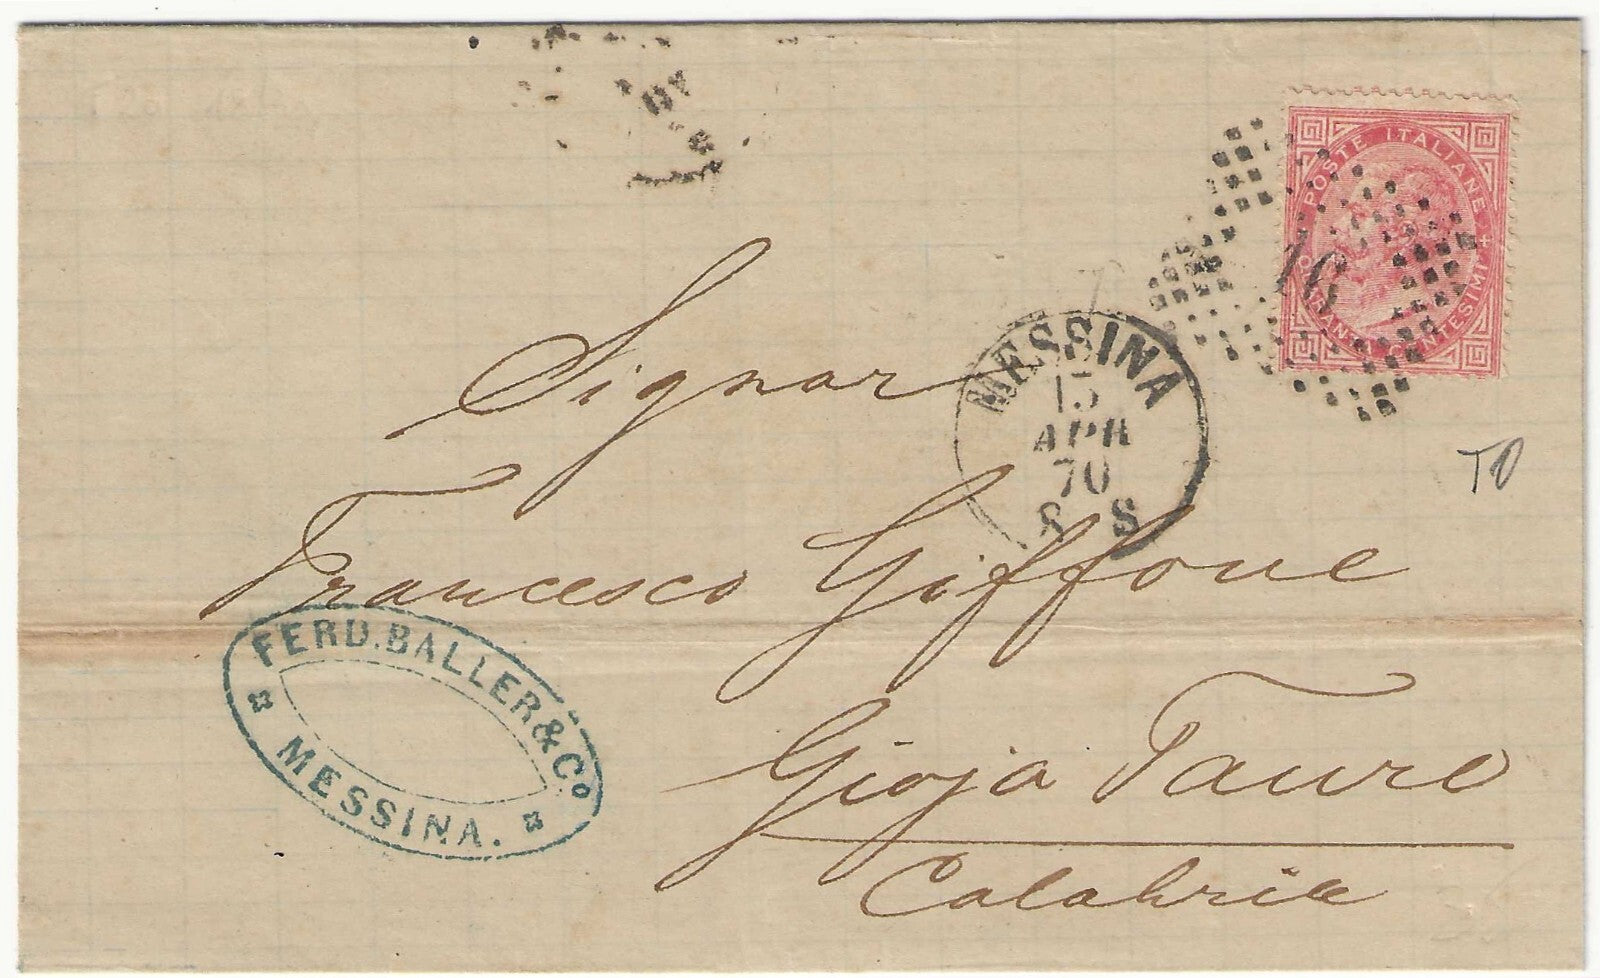 POSTE ITALIANE
QUARANTA CENTESIMI
16
MESSINA
15
APR
70
8 S
T0
Signor
Francesco Giffone
Gioja Tauro
Calabria
FERD. BALLER & Cº
MESSINA.